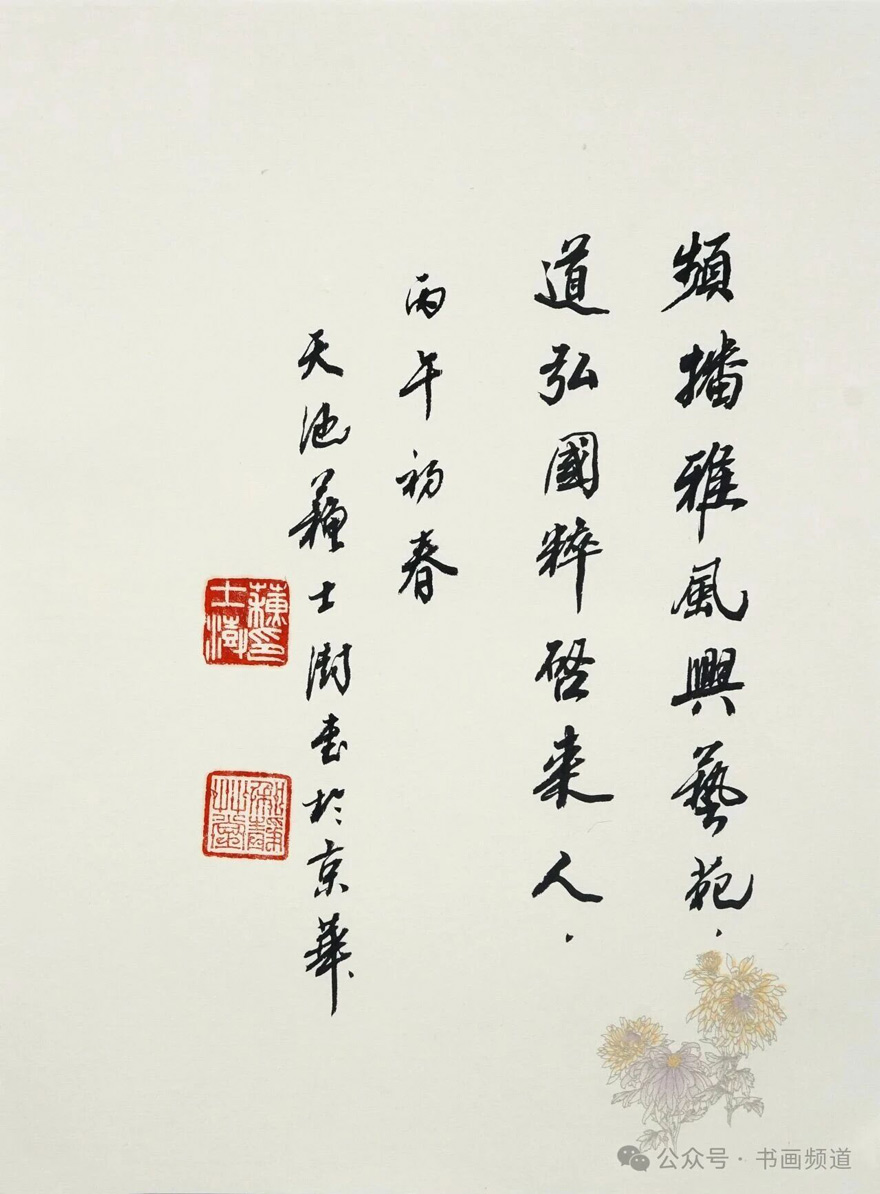 頻播雅風興藝苑.
道弘國粹啓来人.
丙午初春
天池蘇士澍書於京華
蘇士澍印
公众号 · 书画频道